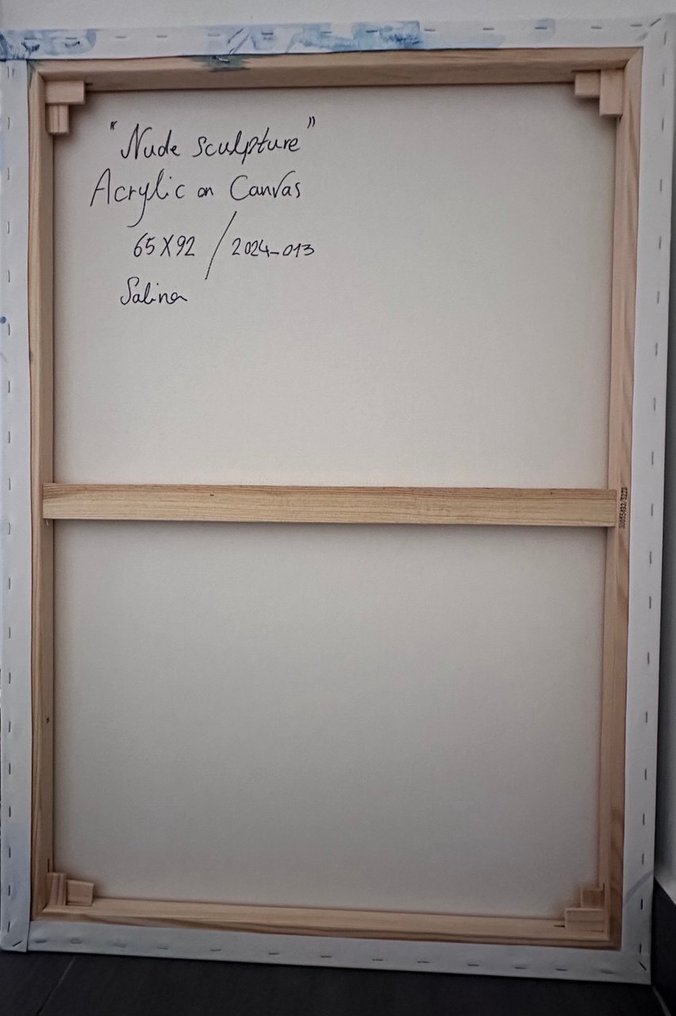 "Nude sculpture"
Acrylic on Canvas
65X92 / 2024-013
Salina